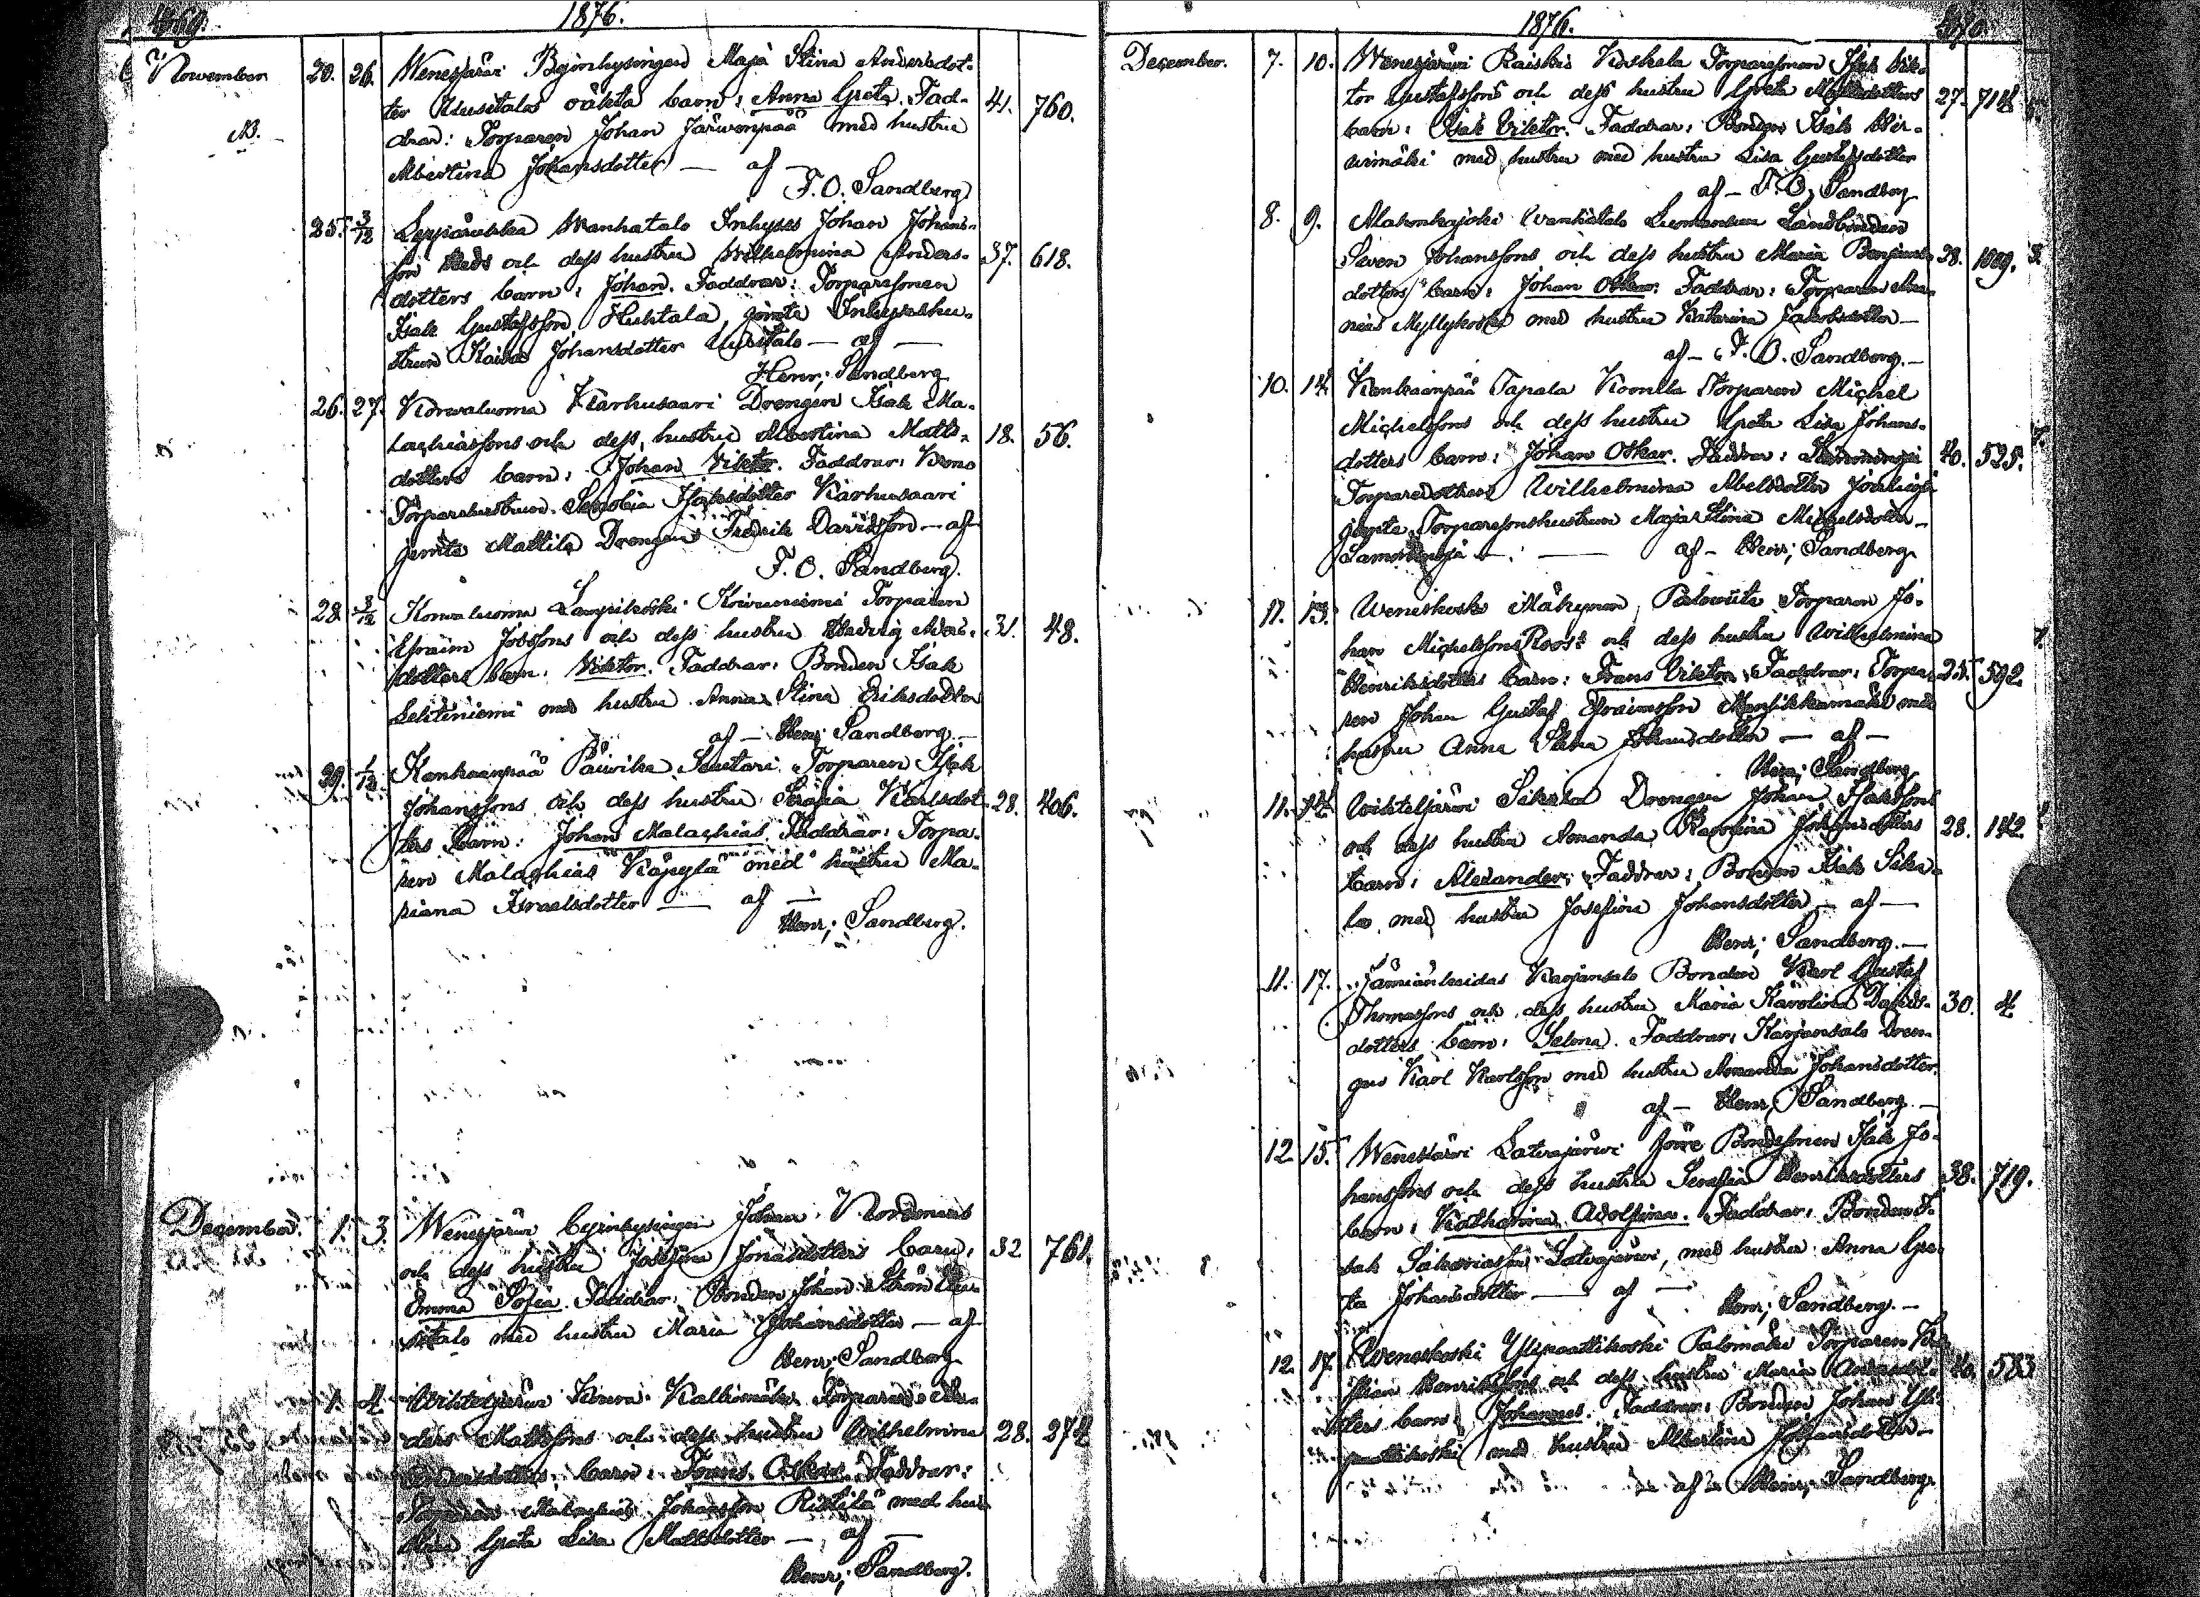 469.
1876.
November
20. 26. Wenesjärvi Byinhysingen Maja Stina Andersdot-
ter Uusitalos oäkta barn: Anna Greta. Fad- 41. 760.
NB.
drar: Torparen Johan Järwenpää med hustru
Albertina Johansdotter — af —
F. O. Sandberg
25. 3/12 Wanhatalo Inhyses Johan Johans-
son och dess hustru Wilhelmina Anders- 37. 618.
dotters barn: Johan. Faddrar: Torparesonen
Isak Gustafsson Huhtala jemte Inhyseshu-
strun Kaisa Johansdotter Uusitalo — af —
Henr; Sandberg
26. 27. Korwaluoma Karhusaari Drengen Isak Ma-
lachiassons och dess hustru Albertina Matts- 18. 56.
dotters barn: Johan Viktor. Faddrar: Krono
Torparehustrun Isaksdotter Karhusaari
jemte Mattila Drengen Fredrik Davidsson — af
F. O. Sandberg.
28. 3/12 Korwaluoma Lampikoski Koivuniemi Torparen
Efraim och dess hustru Hedvig 31. 48.
dotters barn: Viktor. Faddrar: Bonden Isak
Lehtiniemi med hustru Anna Stina Eriksdotter
af — Henr; Sandberg —
29. 1/12 Kankaanpää Päivike Torparen Isak
Johanssons och dess hustru Serafia Karlsdot- 28. 406.
ters barn: Johan Malachias. Faddrar: Torpa-
ren Malachias Käpylä med hustru Ma-
riana Israelsdotter — af —
Henr; Sandberg.
December. 1. 3. Wenesjärvi Byinhysingen Johan Nordmans
och dess hustru Josefina Jonasdotters barn: 32 761.
Emma Sofia. Faddrar: Bonden Johan Uu-
sitalo med hustru Maria Johansdotter — af
Henr; Sandberg
1. 4. Kalliomäki Torparen An-
ders Mattssons och dess hustru Wilhelmina 28. 274
barn: Frans Oskar. Faddrar:
Torparen Malachias Johansson Ristilä med hu-
stru Greta Lisa Mattsdotter — af —
Henr; Sandberg.
1876.
470.
December. 7. 10. Wenesjärvi Raiskio Koskela Torparesonen Isak Vik-
tor Gustafssons och dess hustru Greta 27. 714
barn: Isak Viktor. Faddrar: Bonden Isak
med hustru med hustru Lisa Gustafsdotter
af — F. O. Sandberg
8. 9. Alahonkajoki Wanhatalo Landbonden
Johanssons och dess hustru Maria Benjamins- 28. 1009.
dotters barn: Johan Oskar. Faddrar: Torparen Ana-
nias Myllykoski med hustru Katarina Jakobsdotter —
af — F. O. Sandberg. —
10. 14. Kankaanpää Tapala Torparen Michel
Michelssons och dess hustru Greta Lisa Johans-
dotters barn: Johan Oskar. Faddrar: 40. 525.
Torparedottern Wilhelmina Abelsdotter
jemte Torparesonshustrun Maja Stina Michelsdotter —
— af — Henr; Sandberg
11. 13. Weneskoski Mäkynen Torparen Jo-
han Michelssons Roos' och dess hustru Wilhelmina
Henriksdotters barn: Frans Viktor. Faddrar: Torpa- 25. 592.
ren Johan Gustaf Efraimsson Mansikkamäki med
hustru Anna Stina Johansdotter — af —
Henr; Sandberg
11. 14. Drengen Johan Isakssons
och dess hustru Amanda Karolina Johansdotters 28. 142
barn: Alexander. Faddrar: Bonden Isak Sika-
la med hustru Josefina Johansdotter — af —
Henr; Sandberg. —
11. 17. Jämiänkeidas Karjansalo Bonden Karl Gustaf
Thomassons och dess hustru Maria Karolina Davids- 30. 4
dotters barn: Selma. Faddrar: Karjansalo Dren-
gen Karl Karlsson med hustru Amanda Johansdotter.
af — Henr; Sandberg. —
12. 15. Wenesjärvi Latvajärvi Bondesonen Isak Jo-
hanssons och dess hustru Serafia Henriksdotters 38. 719.
barn: Katharina Adolfina. Faddrar: Bonden I-
sak Sakariasson Latvajärvi, med hustru Anna Gre-
ta Johansdotter — af —
Henr; Sandberg. —
12. 17. Weneskoski Ylipaattikoski Palomäki Torparen
Henrikssons och dess hustru Maria 40. 583
ters barn: Johannes. Faddrar: Bonden Johan Yli-
paattikoski med hustru Albertina Johansdotter —
af — Henr; Sandberg.